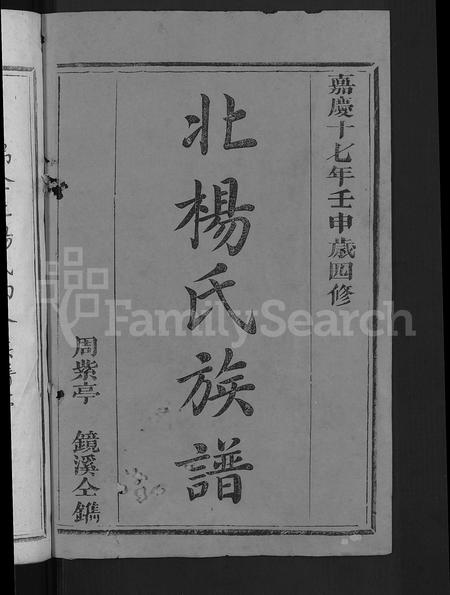 嘉慶十七年壬申歲四修
北楊氏族譜
周紫亭 鏡溪仝鐫
FamilySearch